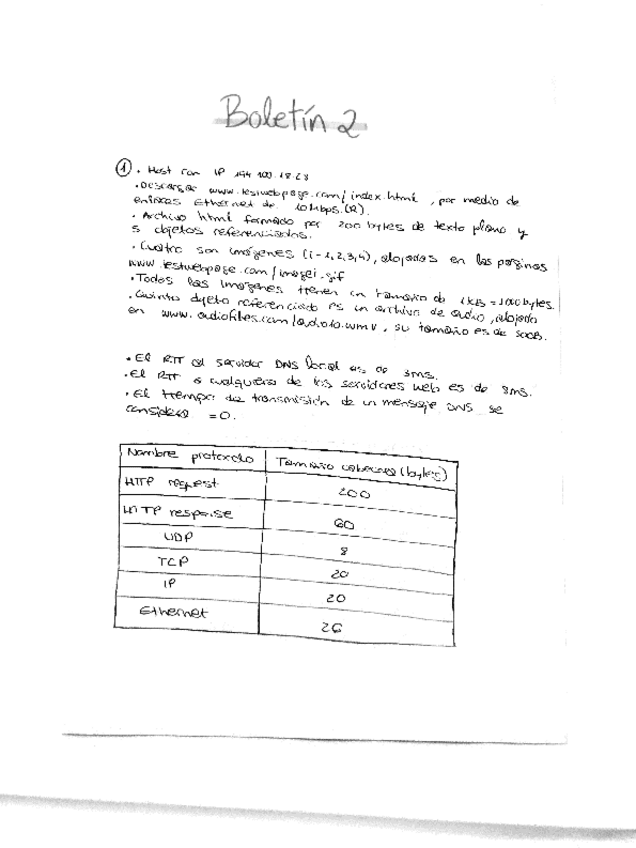 Boletín 2
① . Host con IP 194.100.18.28
• Descargar www.testwebpage.com/index.html , por medio de
enlaces Ethernet de 10Mbps.(R).
• Archivo html formado por 200 bytes de texto plano y
5 objetos referenciados.
• Cuatro son imágenes (i-1,2,3,4), alojadas en las páginas
www testwebpage.com/imagei.gif
• Todas las imágenes tienen un tamaño de 1KB = 1000 bytes.
• Quinto objeto referenciado es un archivo de audio, alojado
en www.audiofiles.com/audio10.wmv , su tamaño es de 500B.
• El RTT al servidor DNS local es de 3ms.
• El RTT a cualquiera de los servidores web es de 8ms.
• El tiempo de transmisión de un mensaje DNS se
considera =0.
Nombre protocolo | Tamaño cabecera (bytes)
HTTP request | 200
HTTP response | 60
UDP | 8
TCP | 20
IP | 20
Ethernet | 26